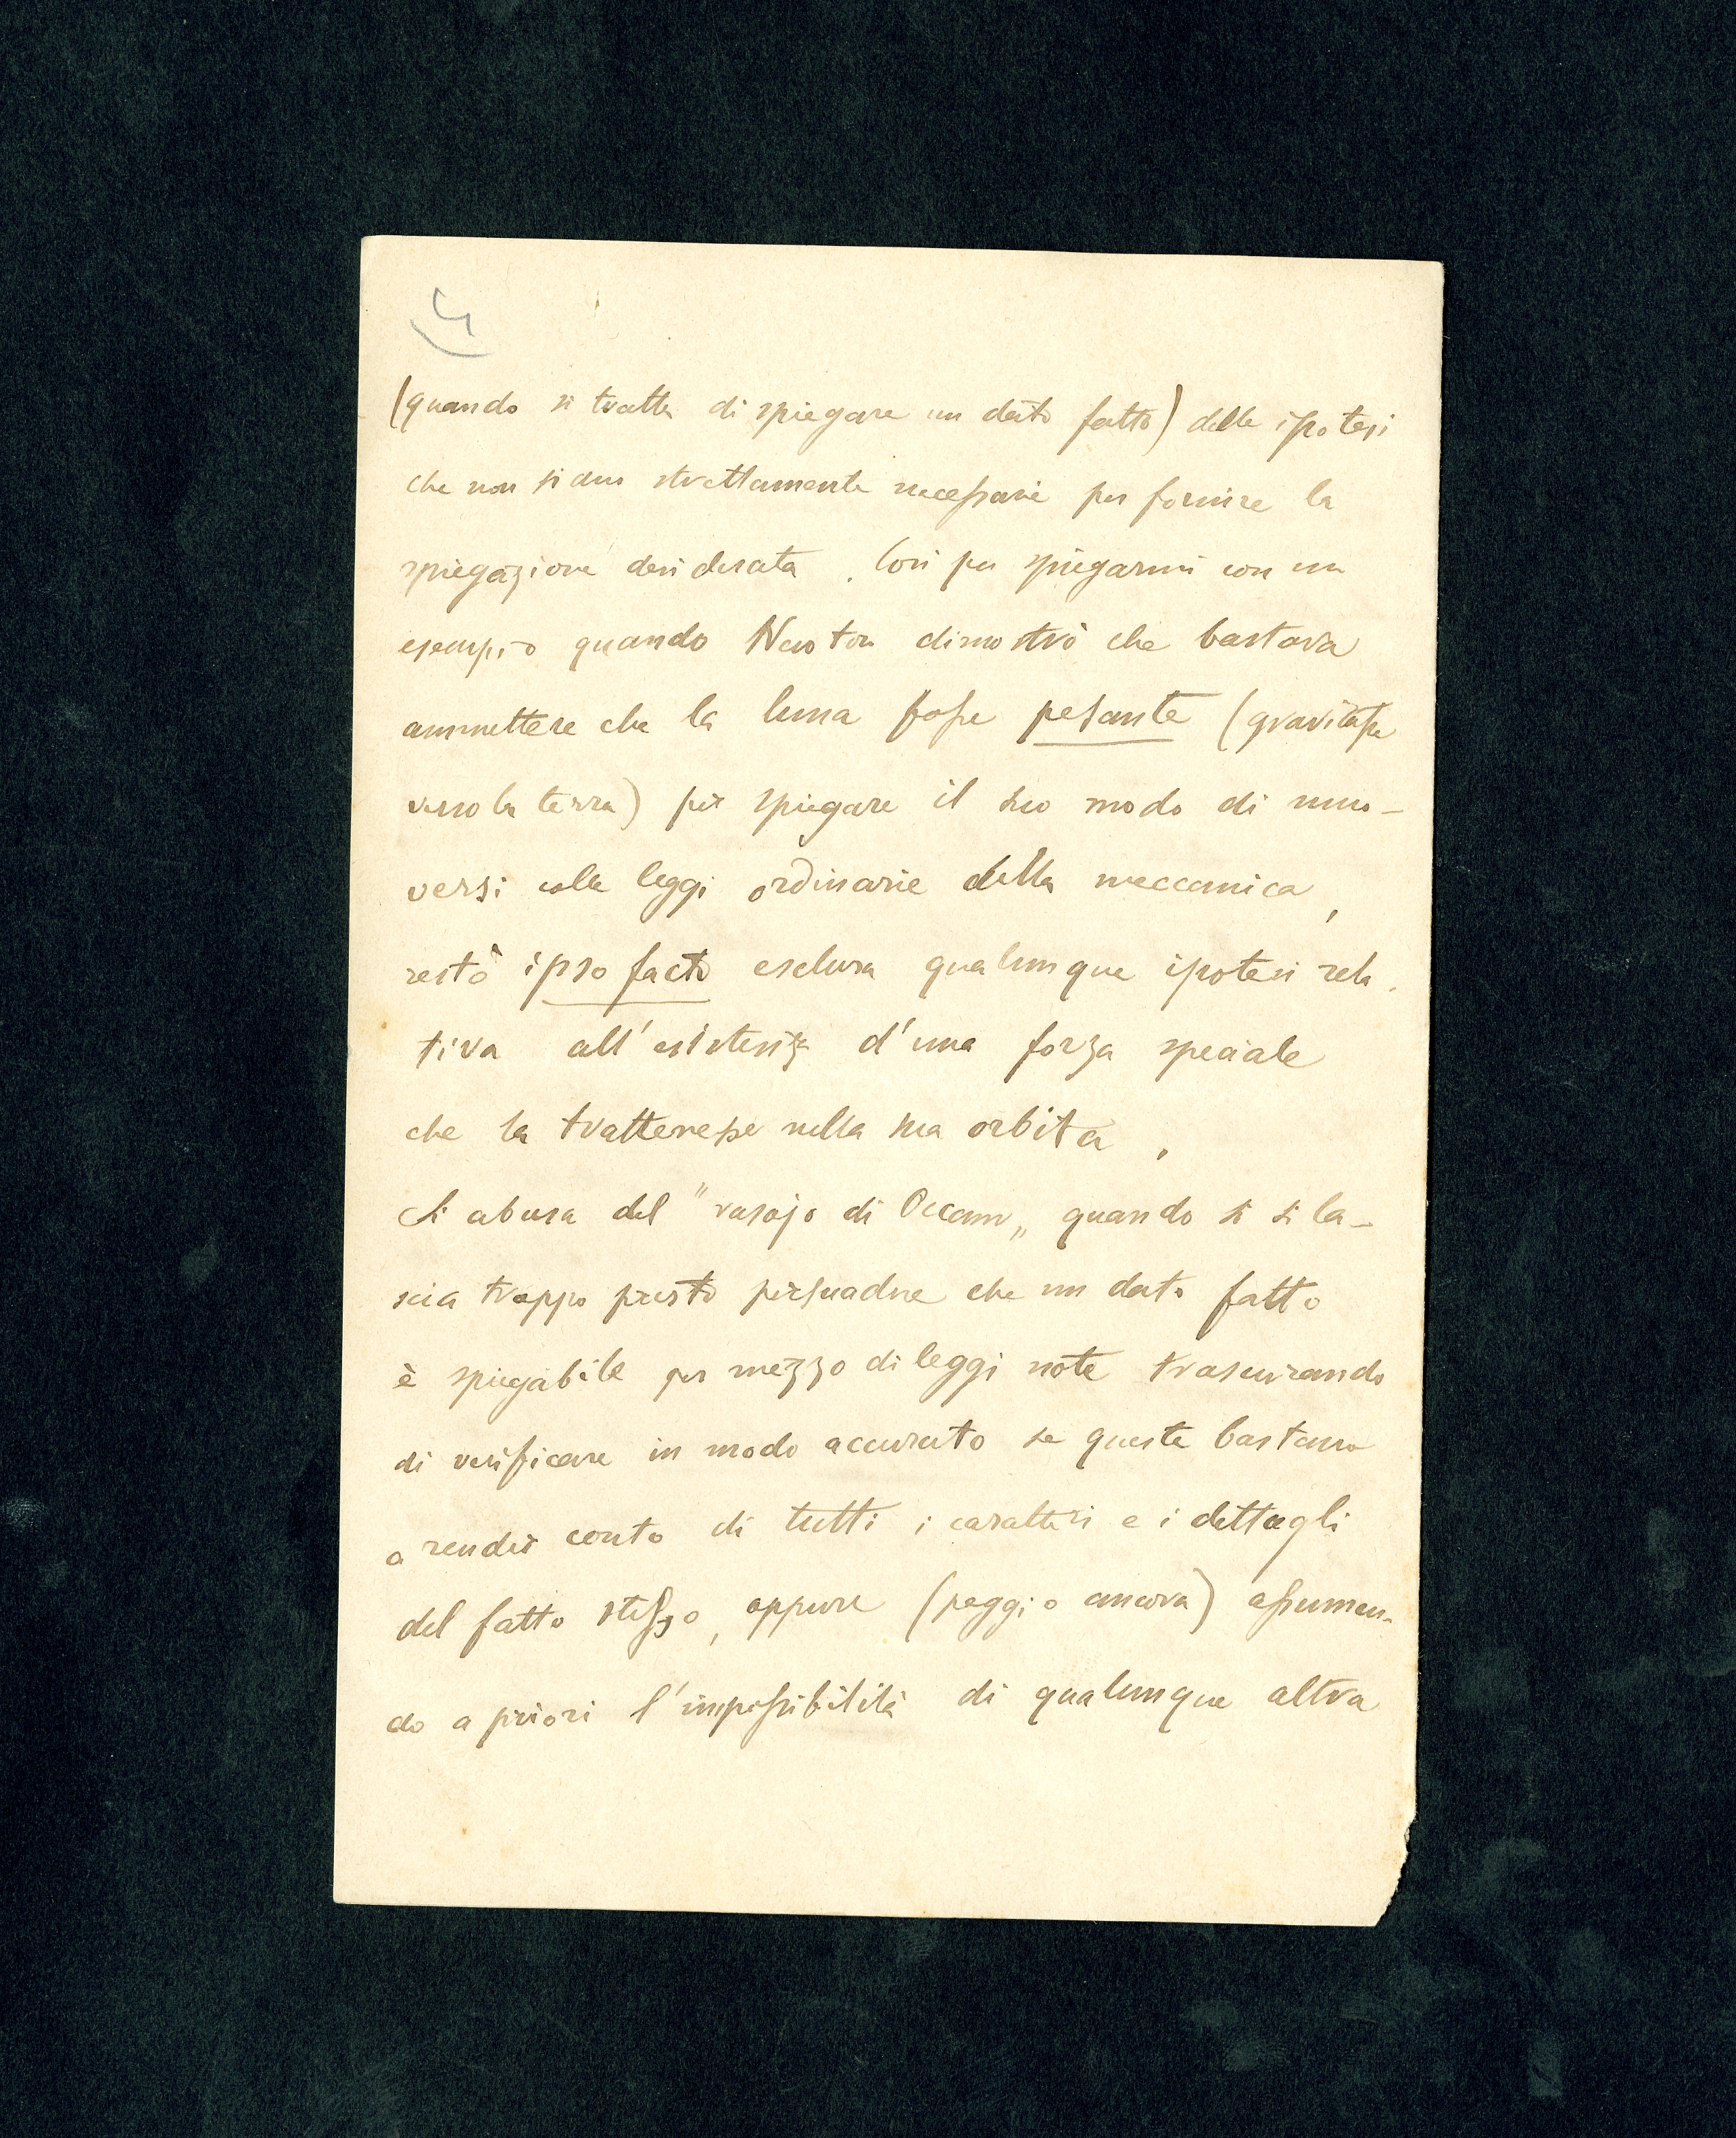 4
(quando si tratta di spiegare un dato fatto) delle ipotesi
che non siano strettamente necessarie per fornire la
spiegazione desiderata. Così per spiegarmi con un
esempio quando Newton dimostrò che bastava
ammettere che la luna fosse pesante (gravitasse
verso la terra) per spiegare il suo modo di muo-
versi colle leggi ordinarie della meccanica,
restò ipso facto esclusa qualunque ipotesi rela-
tiva all'esistenza d'una forza speciale
che la trattenesse nella sua orbita.
Si abusa del "rasojo di Occam„ quando si si la-
scia troppo presto persuadere che un dato fatto
è spiegabile per mezzo di leggi note trascurando
di verificare in modo accurato se queste bastano
a render conto di tutti i caratteri e i dettagli
del fatto stesso, oppure (peggio ancora) assumen-
do a priori l'impossibilità di qualunque altra